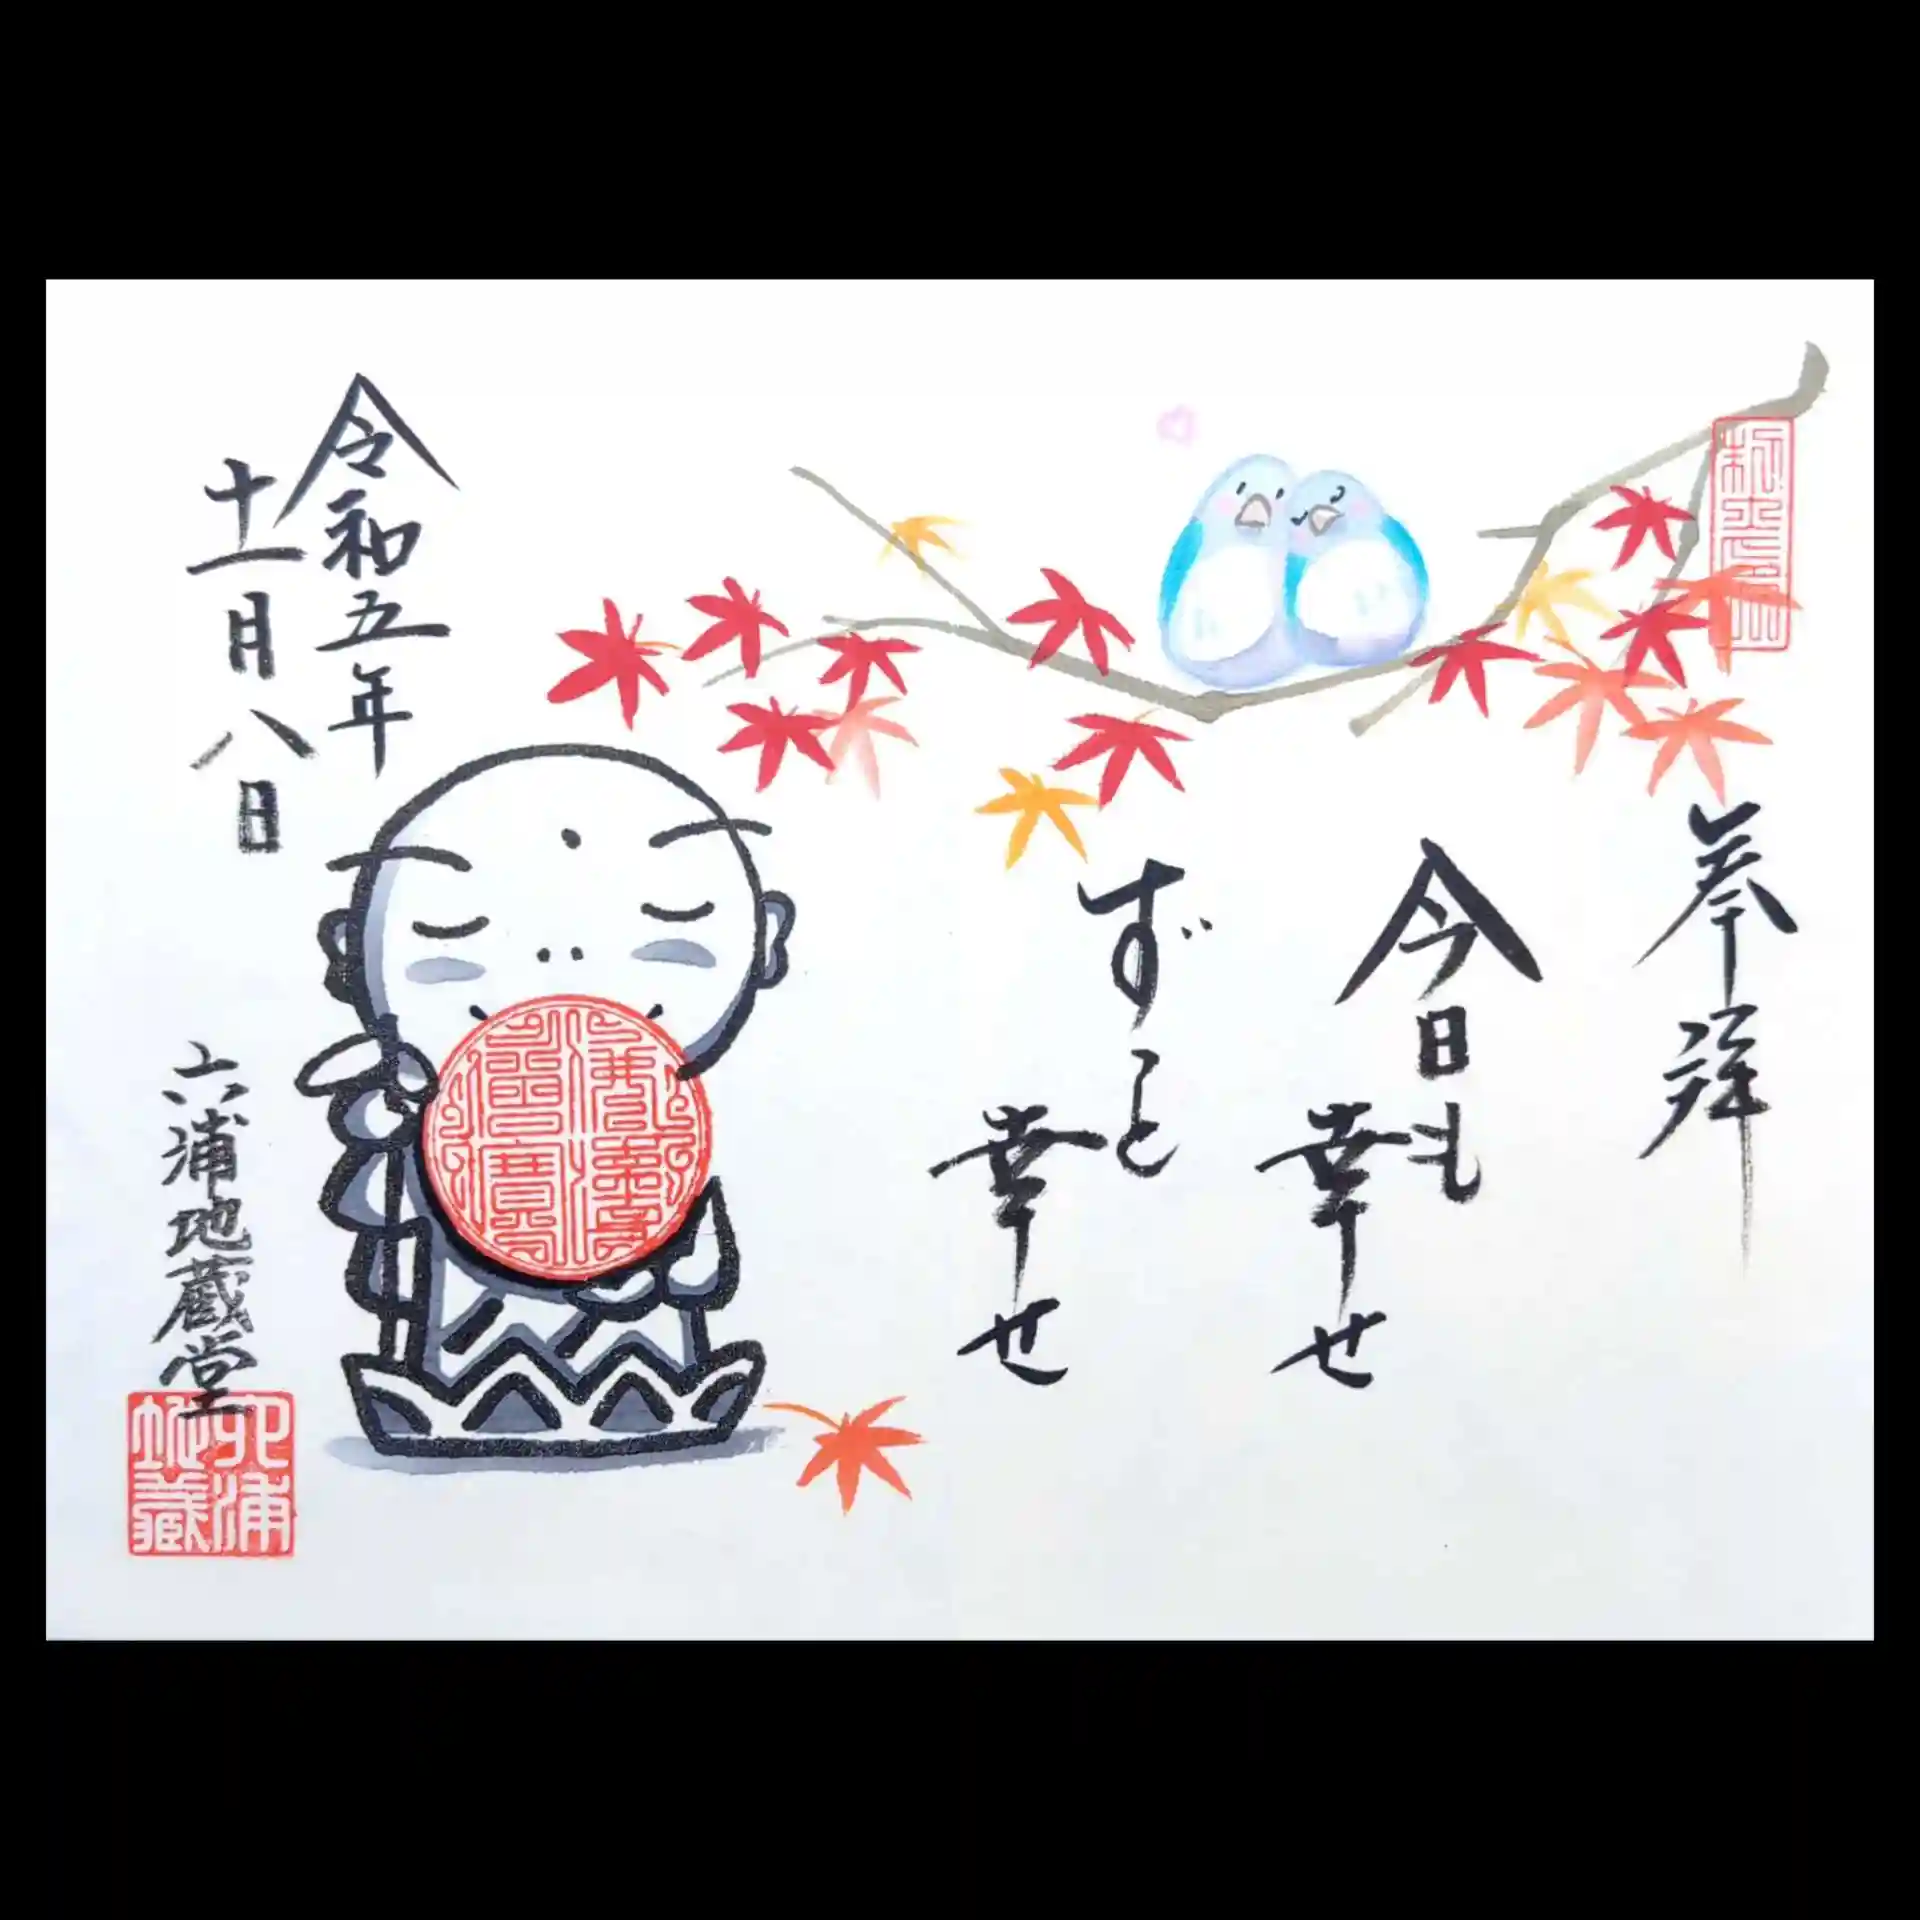 奉拝
今日も
幸せ
ずっと
幸せ
令和五年
十一月八日
六浦地蔵堂
六浦
地蔵